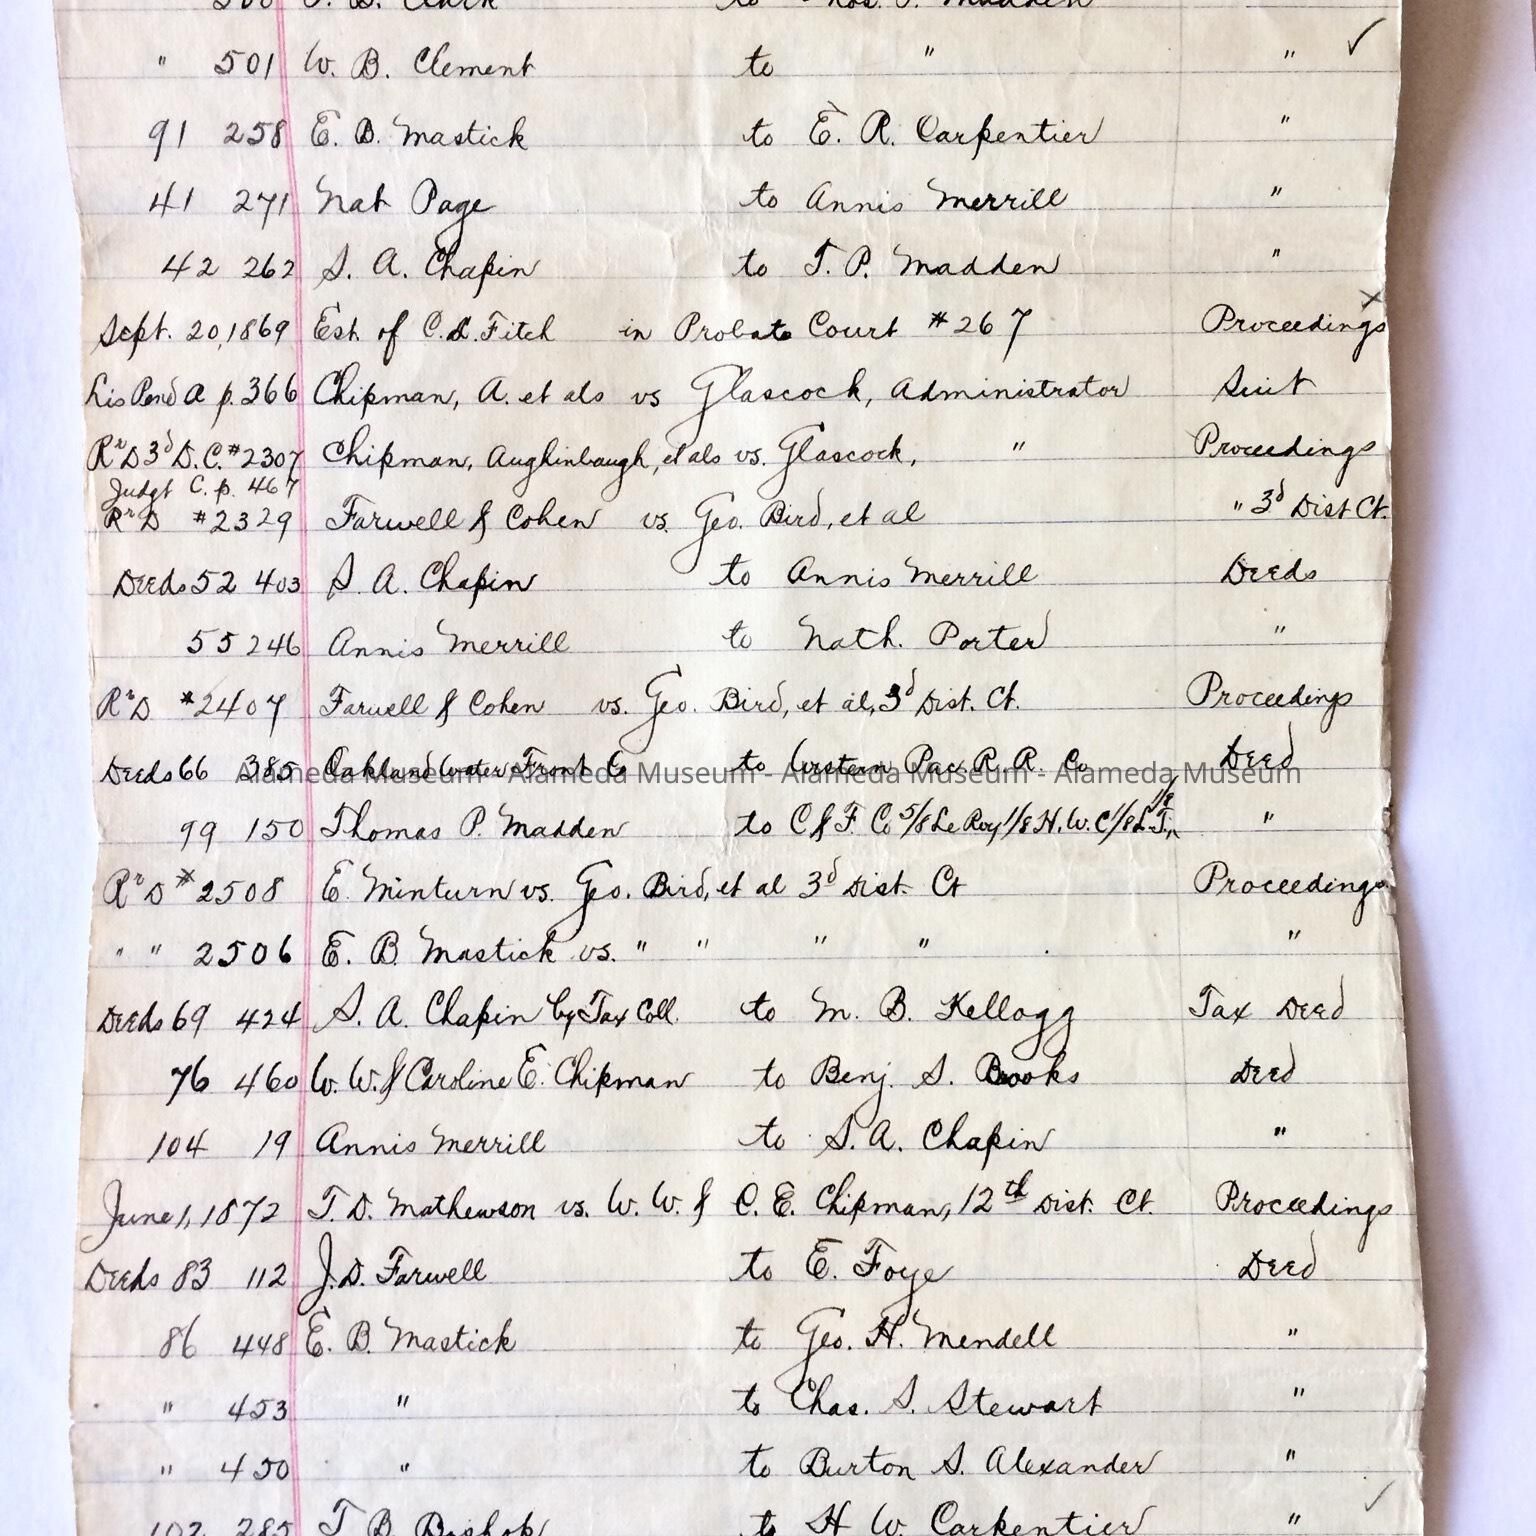 " 501 W. B. Clement to " "
91 258 E. B. Mastick to E. R. Carpentier "
41 271 Nat Page to Annis Merrill "
42 262 S. A. Chapin to T. P. Madden "
Sept. 20, 1869 Est. of C. L. Fitch in Probate Court #267 Proceedings
Lis Pend A p. 366 Chipman, A. et als vs Glascock, Administrator Suit
RrD 3d D.C. #2307 Chipman, Aughinbaugh, et als vs. Glascock, " Proceedings
Judgt C. p. 467
RrD #2329 Farwell & Cohen vs. Geo. Bird, et al " 3d Dist Ct.
Deeds 52 403 S. A. Chapin to Annis Merrill Deeds
55 246 Annis Merrill to Nath. Porter "
RrD #2407 Farwell & Cohen vs. Geo. Bird, et al, 3d Dist. Ct. Proceedings
Deeds 66 385 Oakland Water Front Co to Western Pac R. R. Co Deed
Alameda Museum - Alameda Museum - Alameda Museum - Alameda Museum
99 150 Thomas P. Madden to C & F Co 5/8 Le Roy 1/8 H. W. C 1/8 "
RrD #2508 E. Minturn vs. Geo. Bird, et al 3d Dist. Ct Proceedings
" " 2506 E. B. Mastick vs. " " " " "
Deeds 69 424 S. A. Chapin by Tax Coll. to M. B. Kellogg Tax Deed
76 460 W. W. & Caroline E. Chipman to Benj. S. Brooks Deed
104 19 Annis Merrill to S. A. Chapin "
June 1, 1872 T. D. Mathewson vs. W. W. & C. E. Chipman, 12th Dist. Ct. Proceedings
Deeds 83 112 J. D. Farwell to E. Foye Deed
86 448 E. B. Mastick to Geo. H. Mendell "
" 453 " to Chas. S. Stewart "
" 450 " to Burton S. Alexander "
102 285 T B. Bishop to H W. Carpentier "